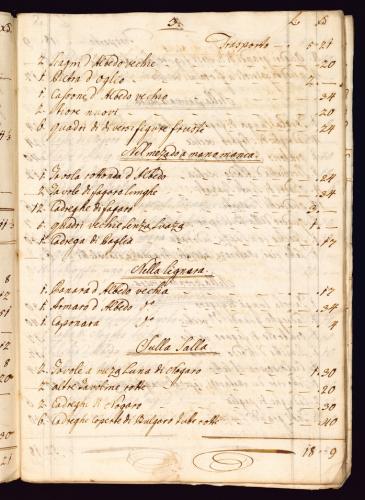 3.
Trasporto 5 - 21
2. Scagni d'Albedo vecchie - 20
1. Pietra d'oglio 2. -
1. Cassone d'Albedo vecchio - 34
2. Store nuovi - 20
6. quadri di diverse figure frusti - 24
Nel mezado a mano manca.
1. Tavola rottonda d'Albedo - 24
2. Tavole di fagaro longhe - 24
12. Cadreghe di fagaro 3. -
5. quadri vecchi senza soaza 1. -
1. Cadrega di Paglia - 17
Nella Lignara.
1. Panara d'Albedo vechia - 17
1. Armaro d'Albedo - 34
1. Caponara - 4
Sulla Salla
2. Tavole a meza Luna di Nogaro 1 - 30
2. altre Tavoline rotte - 20
2. Cadreghi di Nogaro - 30
6. Cadreghe coperte di Bulgaro rotte - 40
18 - 9